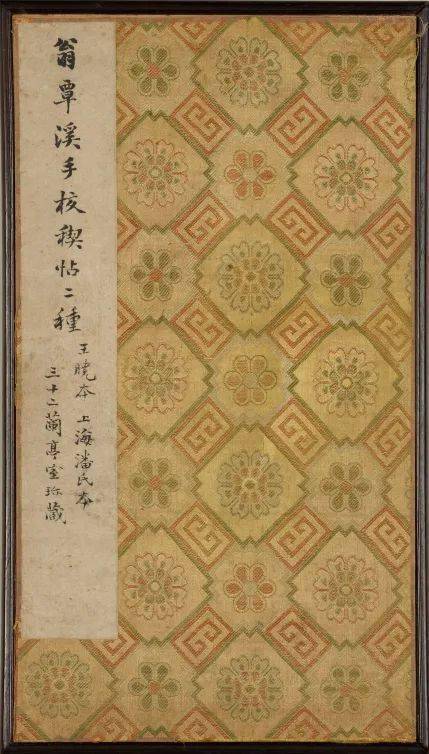 翁覃溪手校禊帖二種
王曉本 上海潘氏本
三十二蘭亭室珎藏